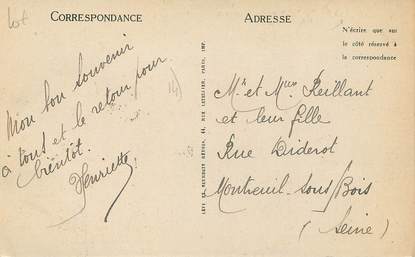 Lot
CORRESPONDANCE
ADRESSE
N'écrire que sur
le côté réservé à
la correspondance
Mon bon souvenir
à tous et le retour pour
bientôt.
Henriette
LÉVY ET NEURDEIN RÉUNIS, 44, RUE LETELLIER, PARIS, IMP.
Mr et Mme Reillant
et leur fille
Rue Diderot
Montreuil-sous-Bois
(Seine)